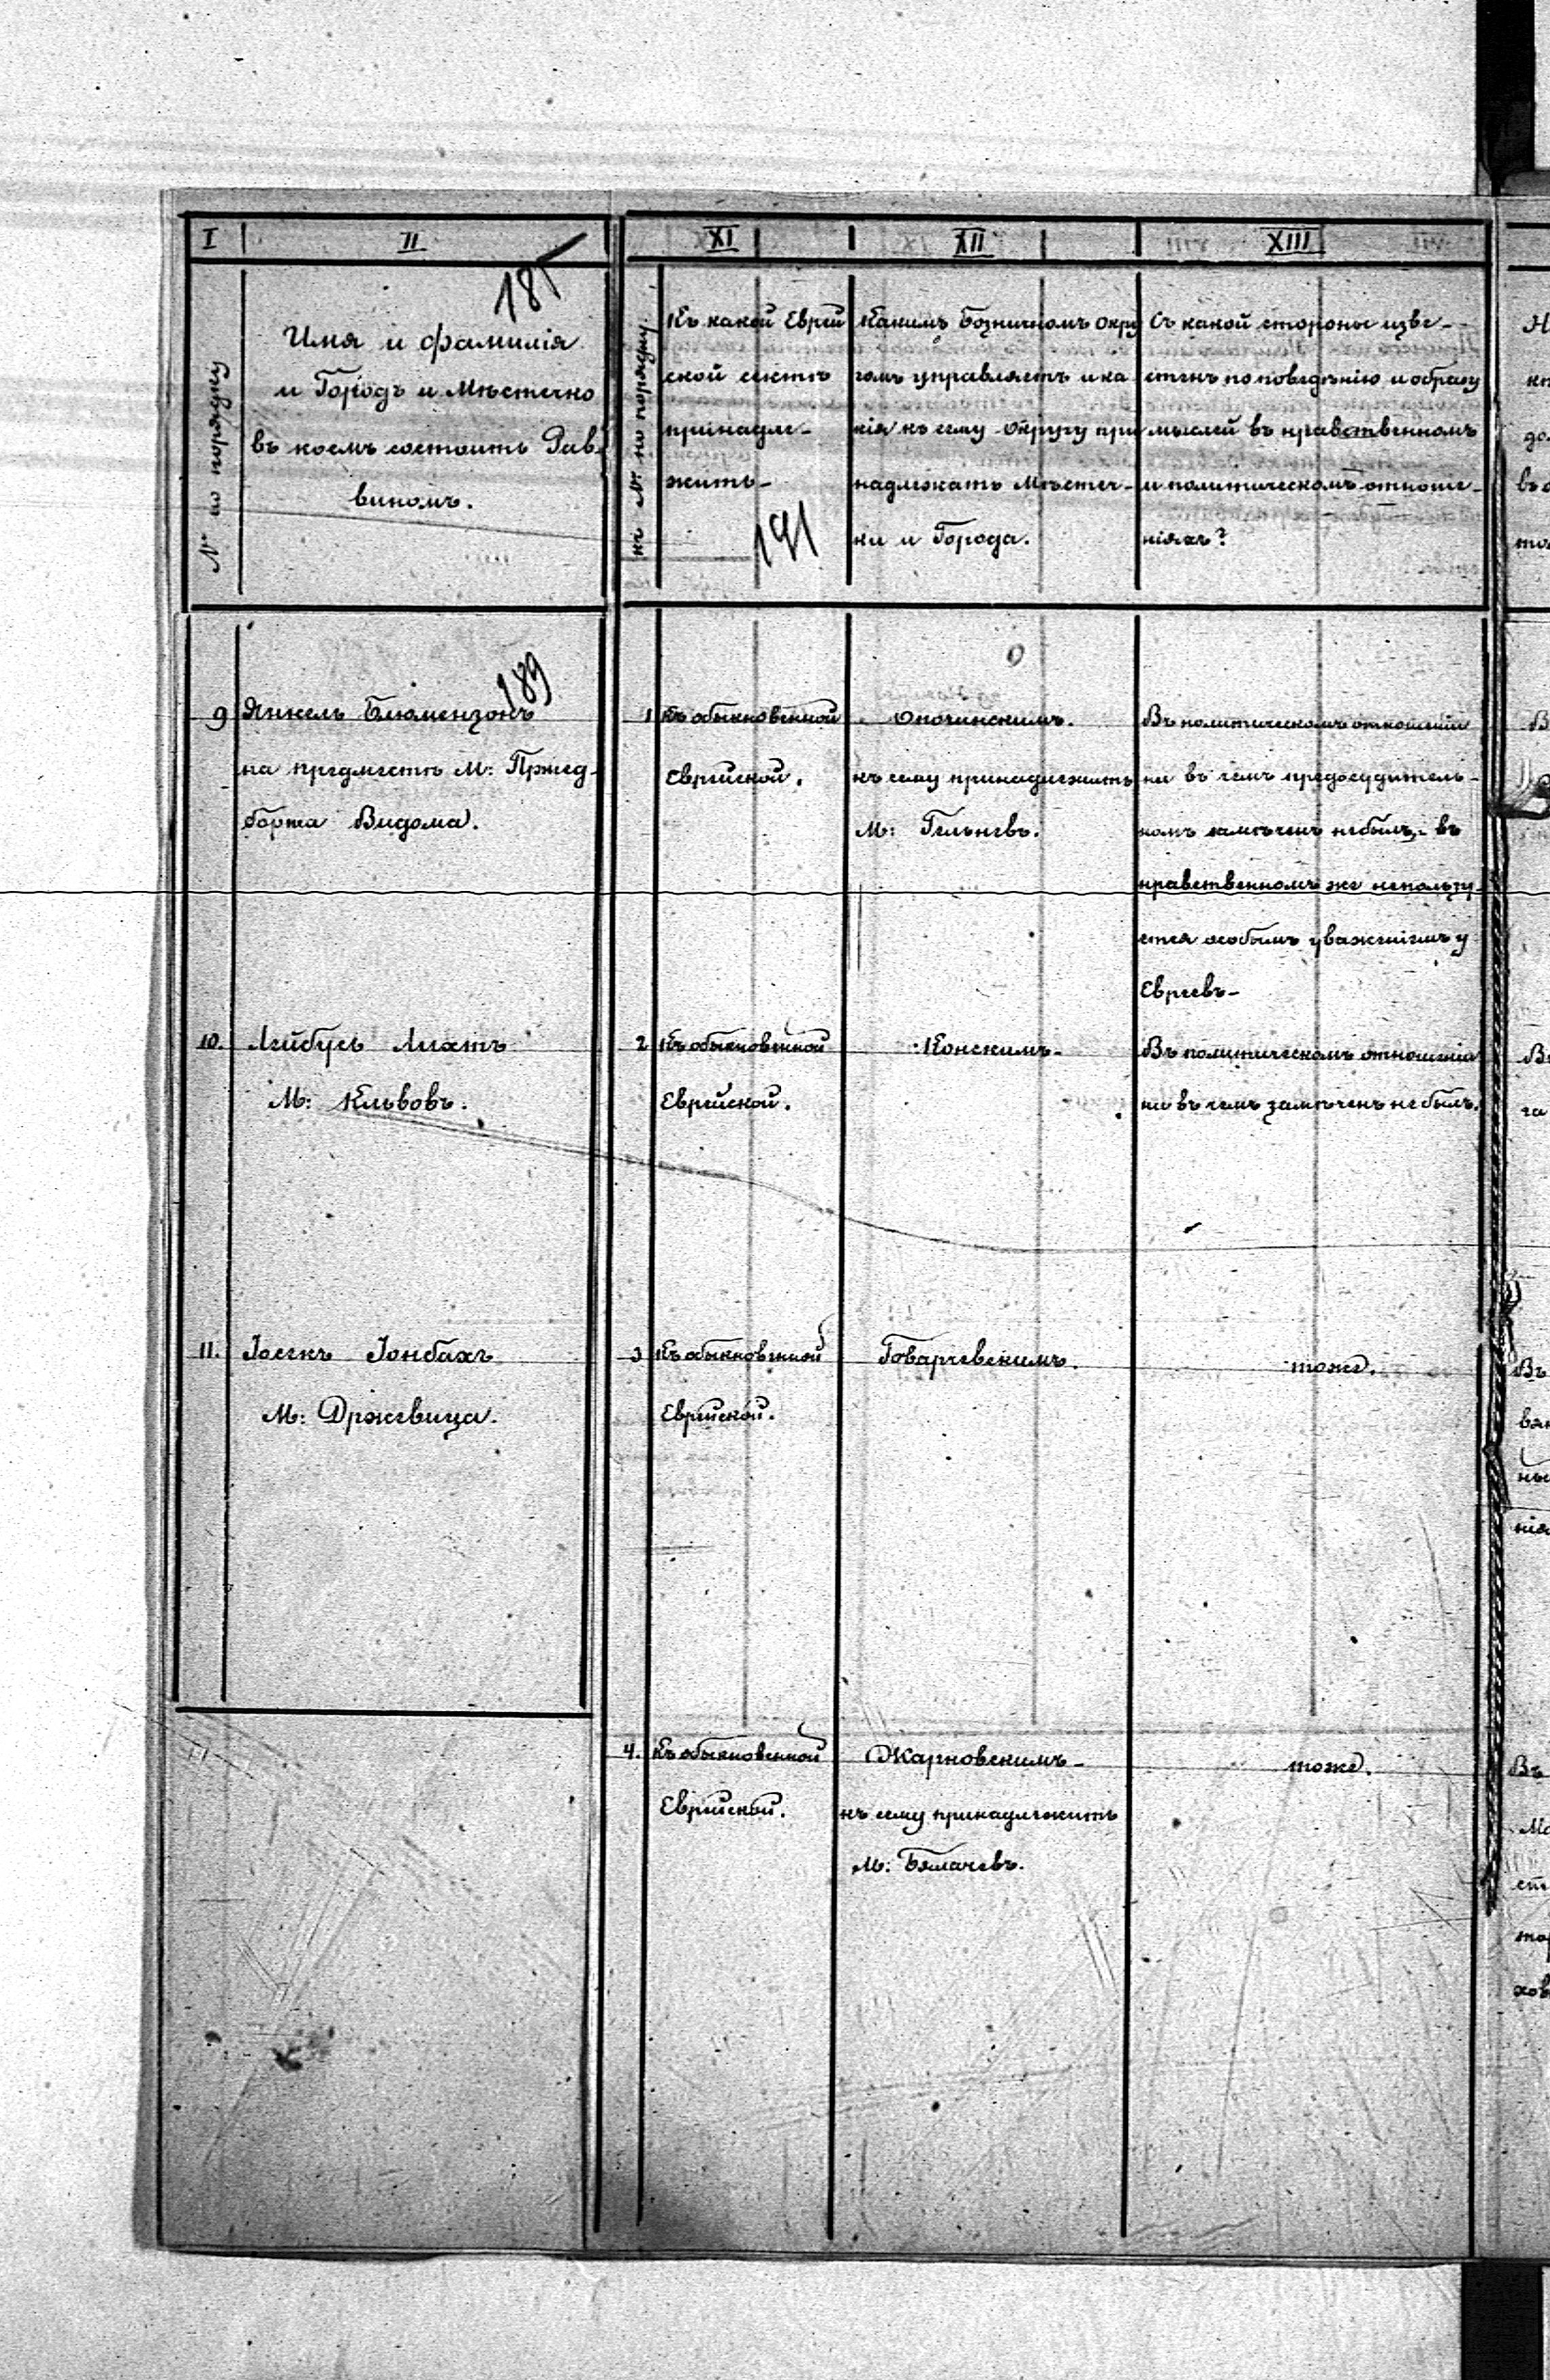 I
II
185
№ по порядку
Имя и фамилія
и Городъ и Мѣстечко
въ коемъ состоитъ Рав-
виномъ.
9 Янкель Блюмензонъ
189
на предмѣстѣ М: Пржед-
боржа Видома.
10. Лейбусь Лихтъ
М: Кльвовъ.
11. Іосекъ Іонбахъ
М: Држевица.
XI
XII
XIII
къ № по порядку
Къ какой Еврей
ской сектѣ
принадле-
житъ-
191
Какимъ Бозничномъ Окру
гомъ управляетъ и ка
кія къ сему Округу при
надлежатъ Мѣстеч-
ки и Города.
Съ какой стороны изве-
стенъ по поведѣнію и образу
мыслей въ нравственномъ
и политическомъ отноше-
ніяхъ?
1 Къ обыкновенной
Еврейской.
Опочинскимъ.
къ сему принадлежитъ
М: Гельневъ.
Въ политическомъ отношеніи
ни въ чемъ предосудитель-
номъ замѣченъ небылъ, въ
нравственномъ же непользу-
ется особымъ уваженіемъ у
Евреевъ-
2 Къ обыкновенной
Еврейской.
Конскимъ-
Въ политическомъ отношеніи
ни въ чемъ замѣченъ небылъ.
3 Къ обыкновенной
Еврейской.
Говарчевскимъ.
тоже.
4. Къ обыкновенной
Еврейской.
Жарновскимъ-
къ сему принадлежитъ
М: Бялачевъ.
тоже.